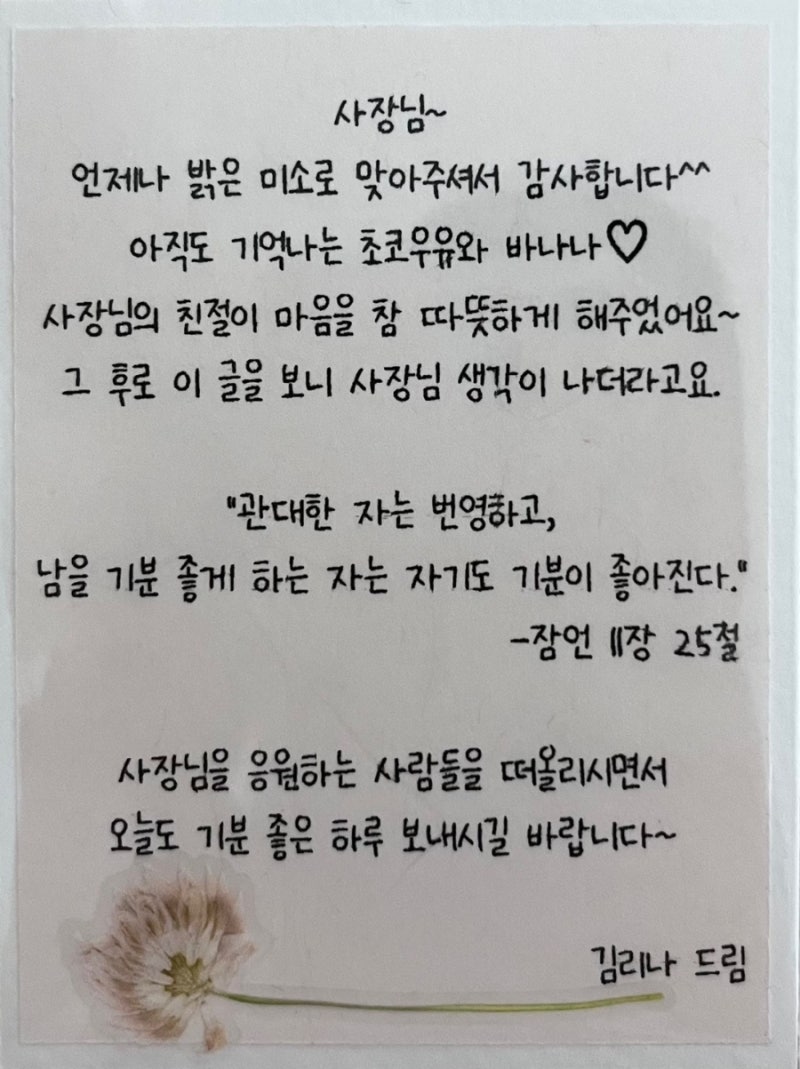 사장님~
언제나 밝은 미소로 맞아주셔서 감사합니다^^
아직도 기억나는 초코우유와 바나나♡
사장님의 친절이 마음을 참 따뜻하게 해주었어요~
그 후로 이 글을 보니 사장님 생각이 나더라고요.
"관대한 자는 번영하고,
남을 기분 좋게 하는 자는 자기도 기분이 좋아진다."
-잠언 11장 25절
사장님을 응원하는 사람들을 떠올리시면서
오늘도 기분 좋은 하루 보내시길 바랍니다~
김리나 드림